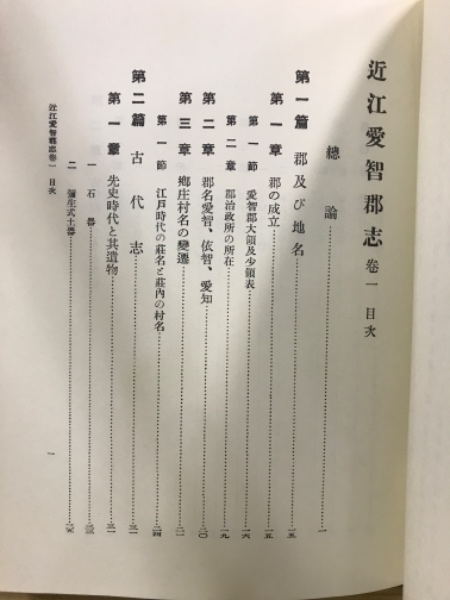 近江愛智郡志 卷一 目次
總論……一
第一篇 郡及び地名……一五
第一章 郡の成立……一五
第一節 愛智郡大領及少領表……一六
第二章 郡治政所の所在……一九
第二章 郡名愛智、依智、愛知……二〇
第三章 鄉庄村名の變遷……二一
第一節 江戸時代の莊名と莊內の村名……二四
第二篇 古代志……三一
第一章 先史時代と其遺物……三一
一 石器……三三
二 彌生式土器……三五
近江愛智郡志卷一 目次
一